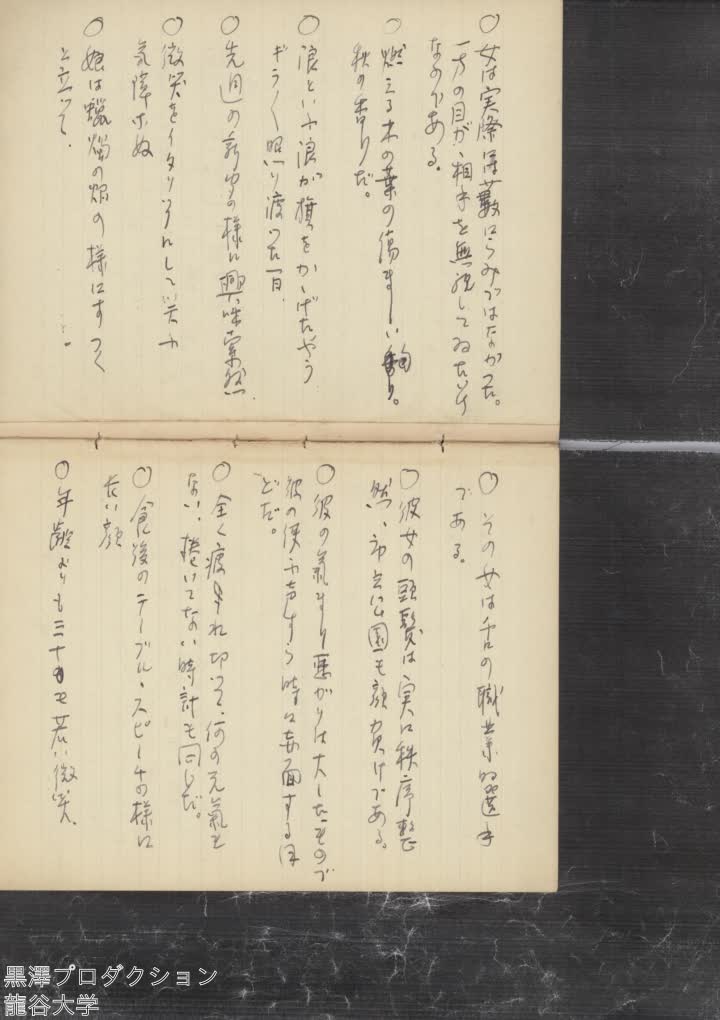 ○ 女は実際は藪にらみではなかつた。
一方の目が、相手を無視してゐただけ
なのである。
○ 燃える木の葉の傷ましい匂り。
秋の香りだ。
○ 浪といふ浪が旗をかゝげたやう
ギラ〳〵照り渡つた一日。
○ 先週の新聞の様に興味索然。
○ 微笑をイタリックにして云ふ
気障な奴
○ 娘は蠟燭の焰の様にすつく
と立つて。
○ その女は舌の職業的選手
である。
○ 彼女の頭髪は実に秩序整
然、市立公園も顔負けである。
○ 彼の気まり悪がりは大したもので
彼の使ふ
時に赤面するほ
どだ。
○ 全く疲れ切つて、何の元氣も
ない、捲いてない時計も同じだ。
○ 食後のテーブル・スピーチの様に
たい顔
○ 年齢よりも三十も若い微笑。
黒澤プロダクション
龍谷大学